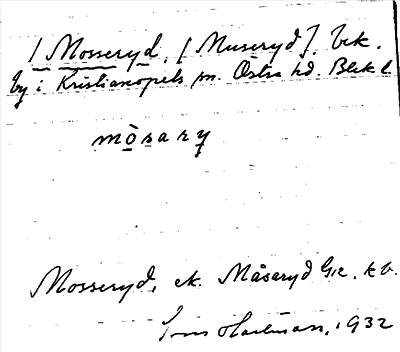 / Mosseryd, [Museryd]. bek.
by i Kristianopels sn. Östra hd. Blek l.
mòsary
Mosseryd, ek. Måsaryd G12. kv.
Hartman, 1932